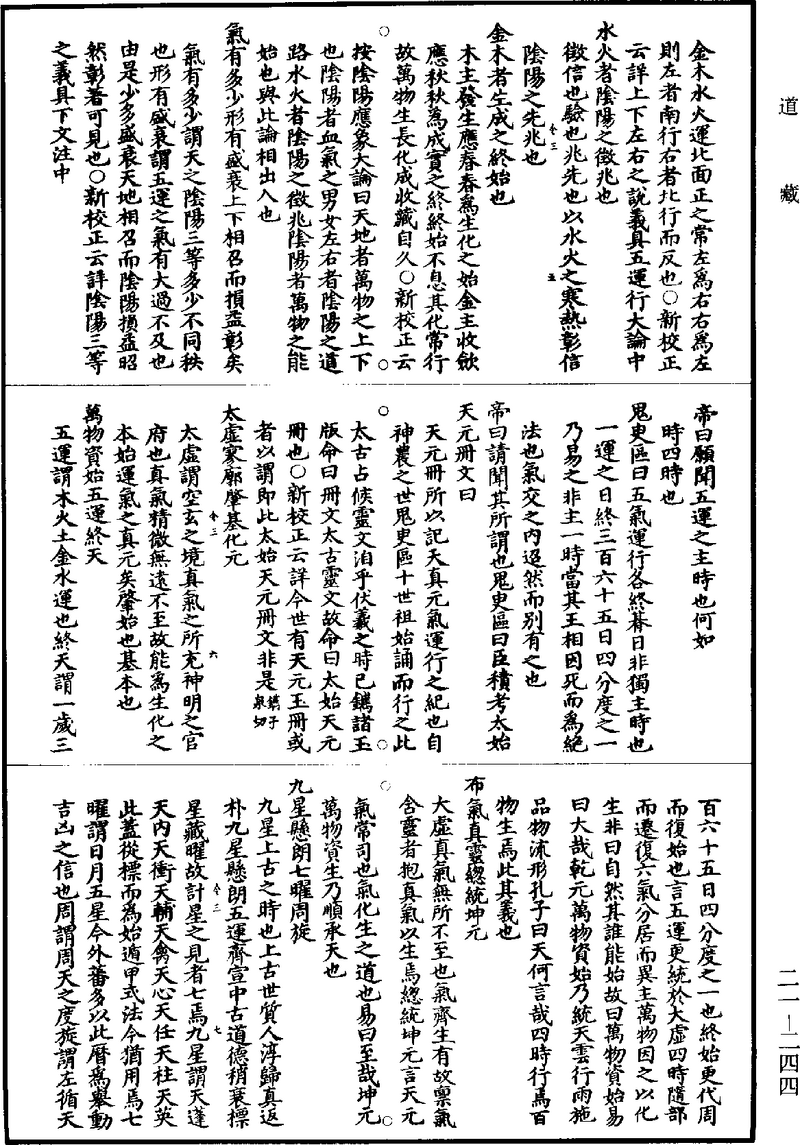 道藏
金木水火運北面正之常左爲右右爲左
則左者南行右者北行而反也○新校正
云詳上下左右之說義具五運行大論中
水火者陰陽之徵兆也
徵信也驗也兆先也以水火之寒熱彰信
陰陽之先兆也
金木者生成之終始也
木主發生應春春爲生化之始金主收斂
應秋秋爲成實之終終始不息其化常行
故萬物生長化成收藏自久○新校正云
按陰陽應象大論曰天地者萬物之上下
也陰陽者血氣之男女左右者陰陽之道
路水火者陰陽之徵兆陰陽者萬物之能
始也與此論相出入也
氣有多少形有盛衰上下相召而損益彰矣
氣有多少謂天之陰陽三等多少不同秩
也形有盛衰謂五運之氣有大過不及也
由是少多盛衰天地相召而陰陽損益昭
然彰著可見也○新校正云詳陰陽三等
之義具下文注中
帝曰願聞五運之主時也何如
時四時也
鬼臾區曰五氣運行各終朞日非獨主時也
一運之日終三百六十五日四分度之一
乃易之非主一時當其王相囚死而爲絕
法也氣交之內迢然而別有之也
帝曰請聞其所謂也鬼臾區曰臣積考太始
天元冊文曰
天元冊所以記天真元氣運行之紀也自
神農之世鬼臾區十世祖始誦而行之此
太古占候靈文洎乎伏羲之時已鐫諸玉
版命曰冊文太古靈文故命曰太始天元
冊也○新校正云詳今世有天元玉冊或
者以謂即此太始天元冊文非是鐫子泉切
太虛寥廓肇基化元
太虛謂空玄之境真氣之所充神明之宮
府也真氣精微無遠不至故能爲生化之
本始運氣之真元矣肇始也基本也
萬物資始五運終天
五運謂木火土金水運也終天謂一歲三
百六十五日四分度之一也終始更代周
而復始也言五運更統於大虛四時隨部
而遷復六氣分居而異主萬物因之以化
生非曰自然其誰能始故曰萬物資始易
曰大哉乾元萬物資始乃統天雲行雨施
品物流形孔子曰天何言哉四時行焉百
物生焉此其義也
布氣真靈緫統坤元
大虛真氣無所不至也氣齊生有故禀氣
含靈者抱真氣以生焉緫統坤元言天元
氣常司也氣化生之道也易曰至哉坤元
萬物資生乃順承天也
九星懸朗七曜周旋
九星上古之時也上古世質人淳歸真返
朴九星懸朗五運齊宣中古道德稍衰標
星藏曜故計星之見者七焉九星謂天蓬
天內天衝天輔天禽天心天任天柱天英
此蓋從標而爲始遁甲式法今猶用焉七
曜謂日月五星今外蕃多以此曆爲舉動
吉凶之信也周謂周天之度旋謂左循天
卷三
五
卷三
六
卷三
七
二一—二四四